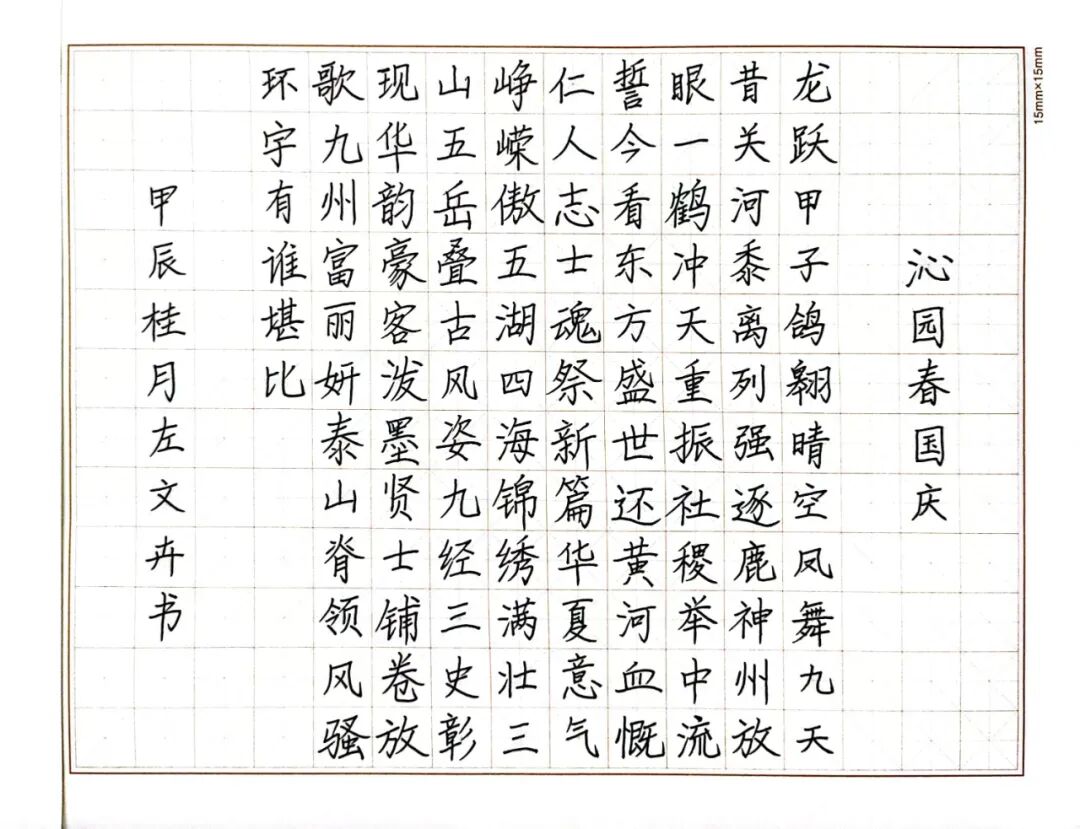 沁园春国庆
龙跃甲子鸽翱晴空凤舞九天
昔关河黍离列强逐鹿神州放
眼一鹤冲天重振社稷举中流
誓今看东方盛世还黄河血慨
仁人志士魂祭新篇华夏意气
峥嵘傲五湖四海锦绣满壮三
山五岳叠古风姿九经三史彰
现华韵豪客泼墨贤士铺卷放
歌九州富丽妍泰山脊领风骚
环宇有谁堪比
甲辰桂月左文卉书
15mm×15mm